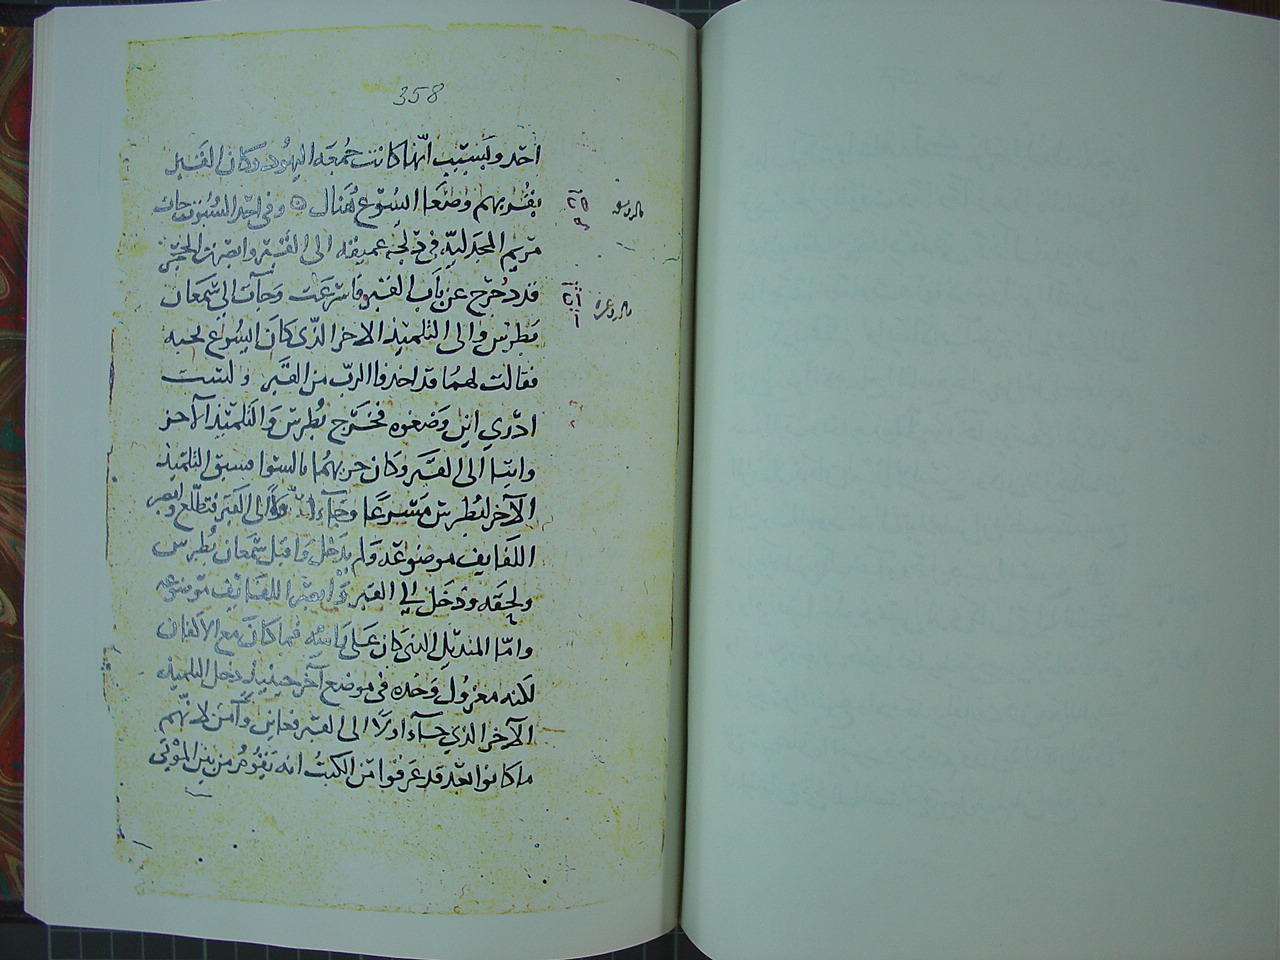 358
احد وبسبب انّها كانت جُمعَه اليهُود وكان القَبر
بقُربهم وضَعَا اليسُوع هُنَاك وفى احد السُبوت جات
مَريم المجدَليّه فى دُلجَه عميقه الى القَبر وابصَرت الحَجَر
قددُحرج عن بَاب القَبر فاسْرعَت وَجآت الى شمَعان
بَطرس والى التلميذ الاخر الذّى كانَ اليسُوع يحبه
فقالت لهمُا قد اخذوا الربّ من القَبر ولست
ادْري اين وَضعوه فخَرَج بُطرس وَالتلميذ الآخر
واتيا الى القَبر وَكان حريهمُا بالسَوا فسبق التلميذ
الآخر لبُطرس مَسْرعًا وجَآء اوّلاً الى القَبر فتطلّع وابصر
اللفَايف موضوعَه وَلم يدَخل وَاقبل شمَعان بُطرس
ولحِقَه ودَخَل الي القبر وَابصَر اللفَايف موضوعه
وامّا المنديل الذى كان عَلى رَاسِه فما كانَ مع الاَكفان
لَكنه معزُول وَحده فى موضع آخر حينيذ دخل التلميذ
الآخر الذي جَآء اولاً الى القبر فعاين وَآمن لانّهم
ما كانوا بَعْد قد عَرفوا من الكتبُ انه يَقُومُ من بين الموْتى